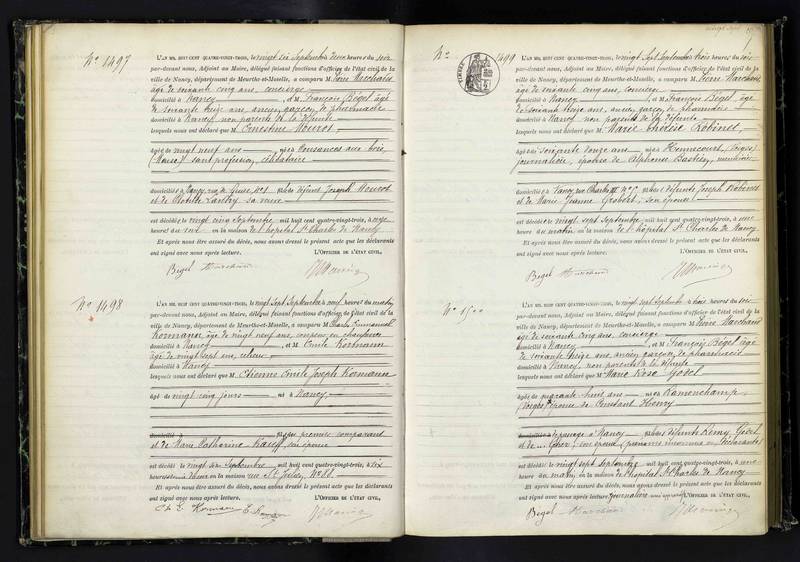 N° 1497
L'AN MIL HUIT CENT QUATRE-VINGT-TROIS, le vingt six Septembre deux heures du soir
par-devant nous, Adjoint au Maire, délégué faisant fonctions d'officier de l'état civil de la
ville de Nancy, département de Meurthe-et-Moselle, a comparu M. Pierre Marchand
âgé de soixante cinq ans, concierge
domicilié à Nancy, et M. François Bégel, âgé
de soixante treize ans, ancien garçon de pharmacie
domicilié à Nancy, non parents de la défunte
lesquels nous ont déclaré que M. Ernestine Mourot
âgée de vingt neuf ans née à Housances aux bois
(Meuse) sans profession, célibataire
domiciliée à Nancy, rue de N° 1 fille de défunt Joseph Mourot
et de Clotilde sa veuve
est décédée le vingt cinq Septembre mil huit cent quatre-vingt-trois, à onze
heures du soir en la maison de l'hôpital St Charles de Nancy
Et après nous être assuré du décès, nous avons dressé le présent acte que les déclarants
ont signé avec nous après lecture. L'OFFICIER DE L'ÉTAT CIVIL,
Bégel Marchand
N° 1498
L'AN MIL HUIT CENT QUATRE-VINGT-TROIS, le vingt sept Septembre à neuf heures du matin
par-devant nous, Adjoint au Maire, délégué faisant fonctions d'officier de l'état civil de la
ville de Nancy, département de Meurthe-et-Moselle, a comparu M. Charles Emmanuel
Kormann, âgé de vingt neuf ans, coupeur en chaussures
domicilié à Nancy, et M. Emile Kormann
âgé de vingt sept ans, relieur
domicilié à Nancy
lesquels nous ont déclaré que M. Etienne Emile Joseph Kormann
âgé de vingt cinq jours né à Nancy
fils du premier comparant
et de Marie Catherine son épouse
est décédé le vingt six Septembre mil huit cent quatre-vingt-trois, à six
heures en la maison rue St Julien, N° 88
Et après nous être assuré du décès, nous avons dressé le présent acte que les déclarants
ont signé avec nous après lecture. L'OFFICIER DE L'ÉTAT CIVIL,
Ch. E. Kormann E. Kormann
N° 1499
L'AN MIL HUIT CENT QUATRE-VINGT-TROIS, le vingt sept Septembre trois heures du soir
par-devant nous, Adjoint au Maire, délégué faisant fonctions d'officier de l'état civil de la
ville de Nancy, département de Meurthe-et-Moselle, a comparu M. Pierre Marchand
âgé de soixante cinq ans, concierge
domicilié à Nancy, et M. François Bégel, âgé
de soixante treize ans, ancien garçon de pharmacie
domicilié à Nancy, non parents de la défunte
lesquels nous ont déclaré que M. Marie Thérèse Robinet
âgée de soixante douze ans née à Hennecourt (Vosges)
journalière, épouse de Alphonse Bastien, menuisier
domiciliée à Nancy, rue Charles III N° 5 fille de défunts Joseph Robinet
et de Marie Jeanne Grosbert, son épouse
est décédée le vingt sept Septembre mil huit cent quatre-vingt-trois, à une
heure du matin en la maison de l'hôpital St Charles de Nancy
Et après nous être assuré du décès, nous avons dressé le présent acte que les déclarants
ont signé avec nous après lecture. L'OFFICIER DE L'ÉTAT CIVIL,
Bégel Marchand
N° 1500
L'AN MIL HUIT CENT QUATRE-VINGT-TROIS, le vingt sept Septembre à trois heures du soir
par-devant nous, Adjoint au Maire, délégué faisant fonctions d'officier de l'état civil de la
ville de Nancy, département de Meurthe-et-Moselle, a comparu M. Pierre Marchand
âgé de soixante cinq ans, concierge
domicilié à Nancy, et M. François Bégel âgé
de soixante treize ans, ancien garçon de pharmacie
domicilié à Nancy, non parents de la défunte
lesquels nous ont déclaré que M. Marie Rose Godel
âgée de quarante huit ans née à Ramonchamp
(Vosges) épouse de Constant Henry
à Nancy fille de défunts Rémy Godel
et de son épouse, prénoms inconnus aux déclarants
est décédée le vingt sept Septembre mil huit cent quatre-vingt-trois, à une
heure du matin en la maison de l'hôpital St Charles de Nancy
Et après nous être assuré du décès, nous avons dressé le présent acte que les déclarants
ont signé avec nous après lecture. journalière L'OFFICIER DE L'ÉTAT CIVIL,
Bégel Marchand